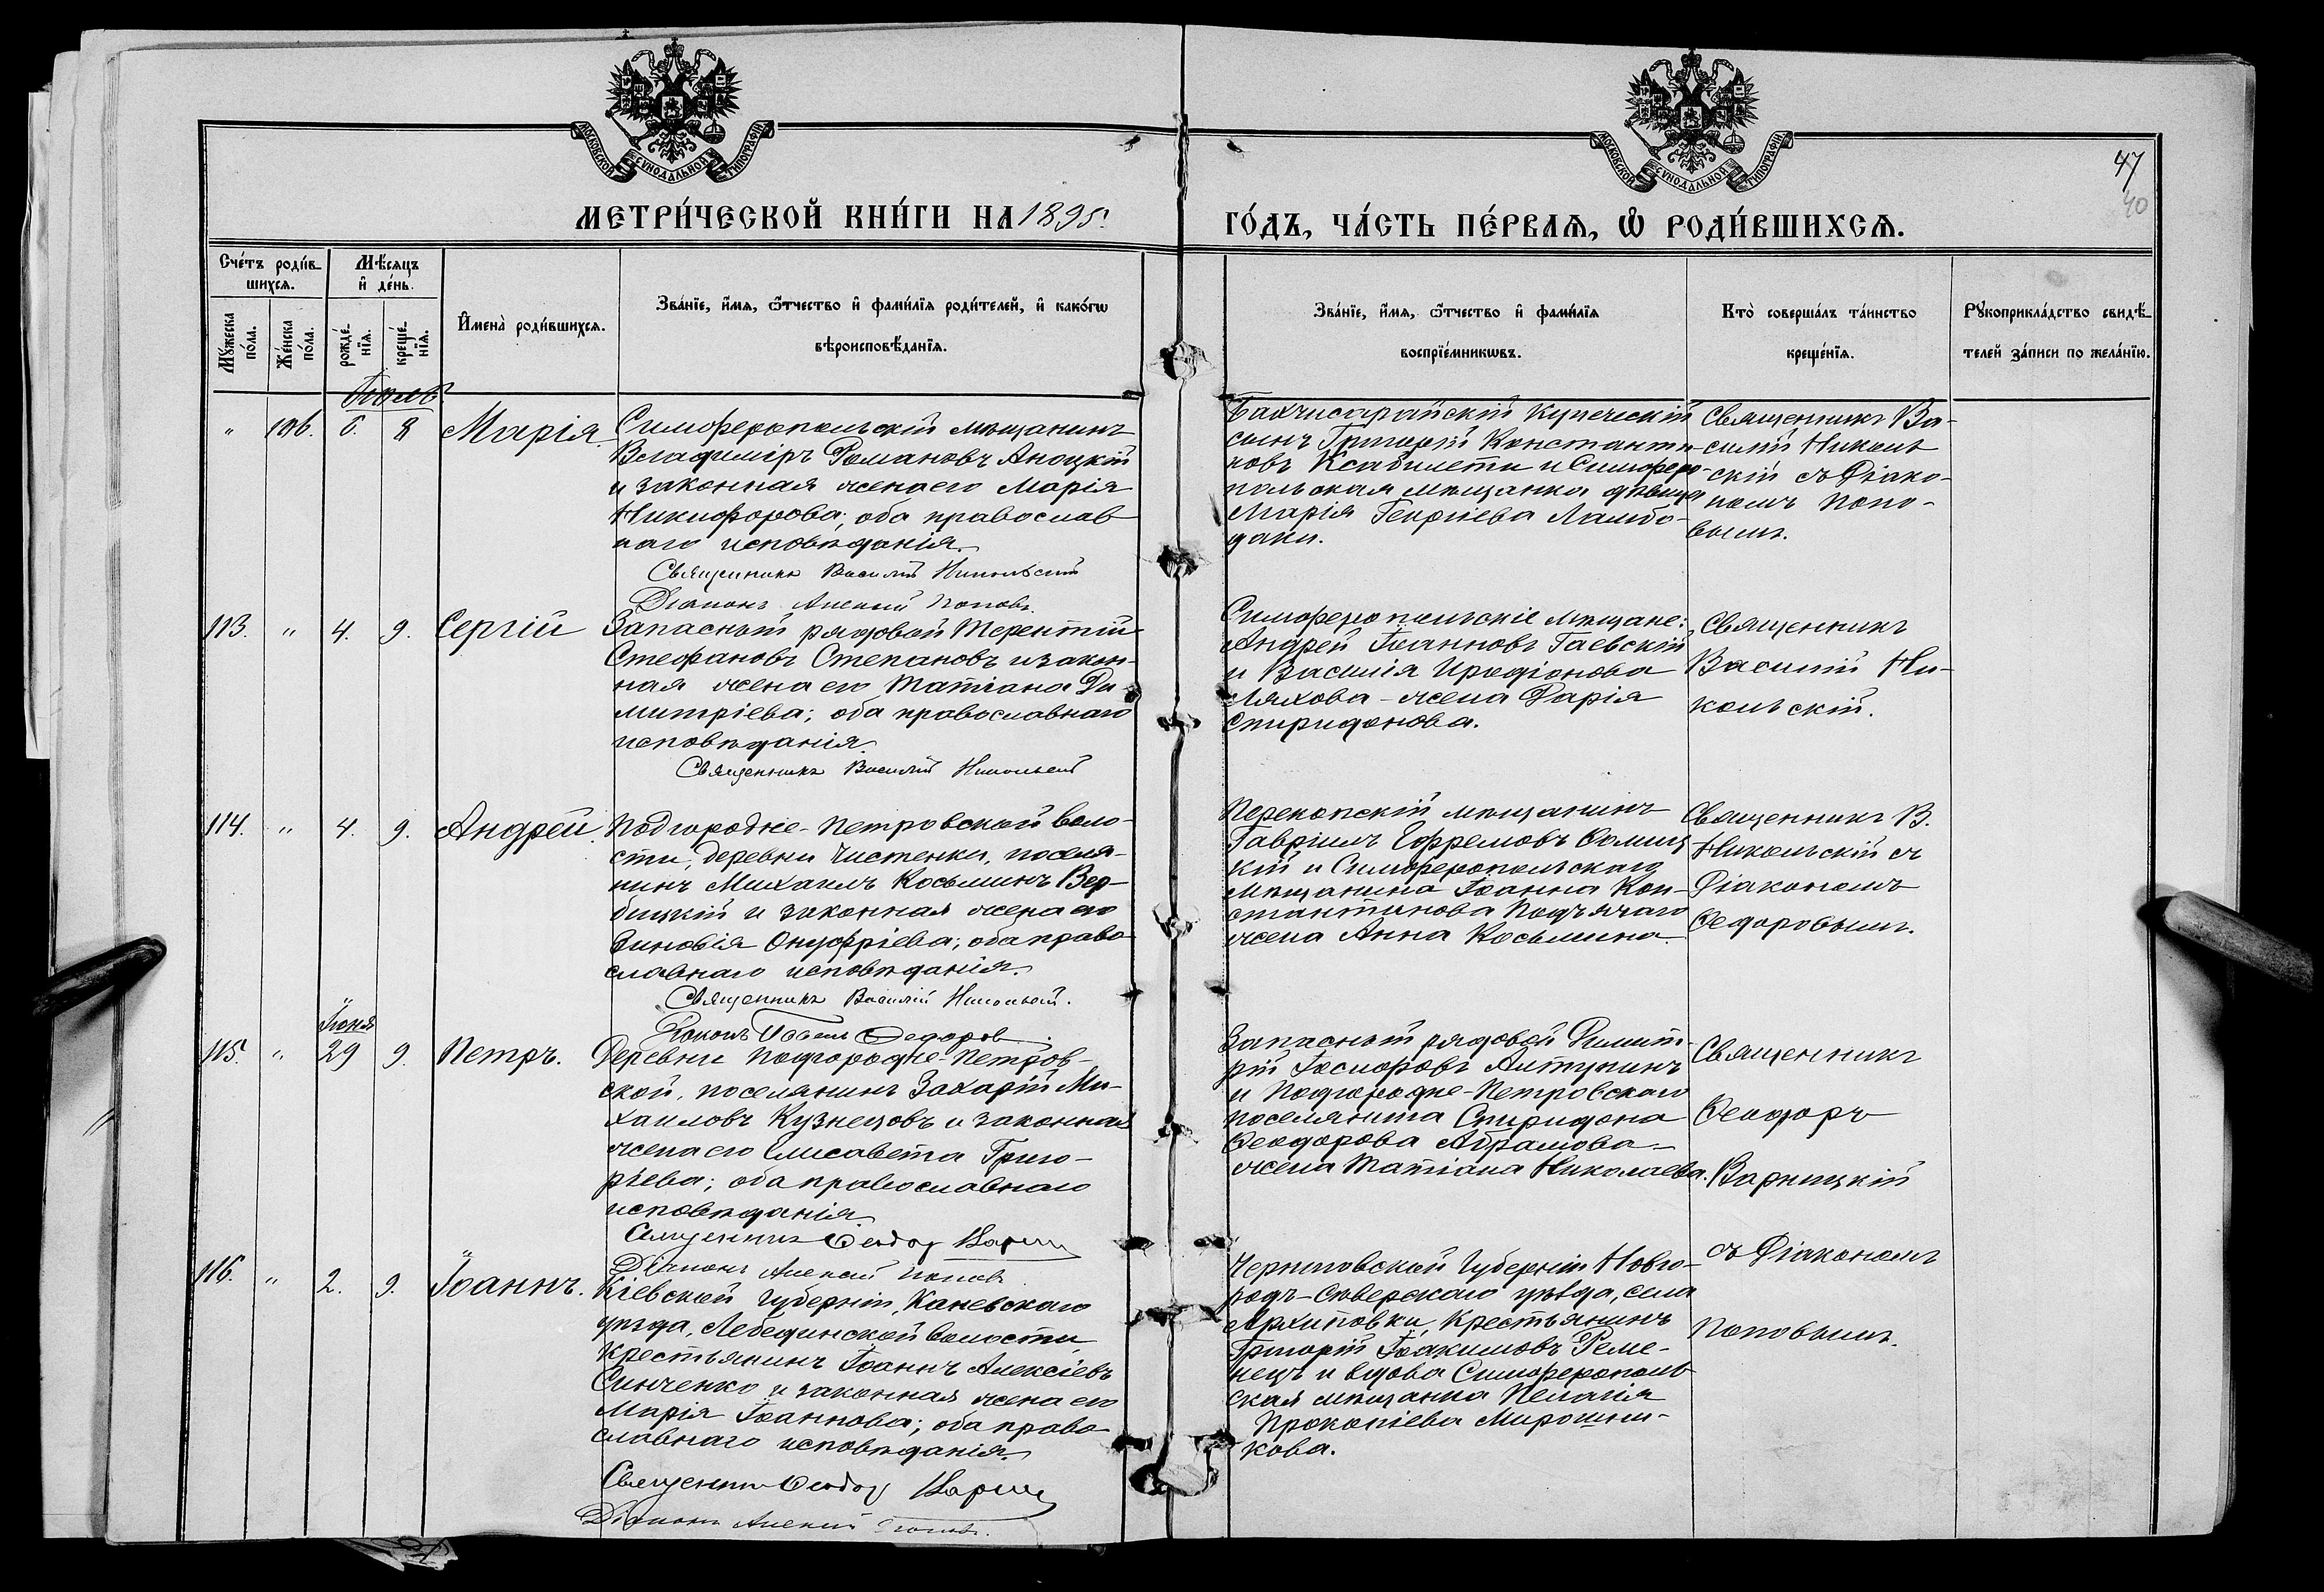 МОСКОВСКОЙ СѴНОДАЛЬНОЙ ТИПОГРАФІИ
МОСКОВСКОЙ СѴНОДАЛЬНОЙ ТИПОГРАФІИ
47
40
МЕТРИ́ЧЕСКОЙ КНИ́ГИ НА 1895.
ГО́ДЪ, ЧА́СТЬ ПЕ́РВАѦ, Ѡ҆ РОДИ́ВШИХСѦ.
Сче́тъ роди́в-
шихся.
Мѣ́сяцъ
и҆ де́нь.
Му́жеска
по́ла.
Же́нска
по́ла.
рожде́-
нїя.
креще́-
нїя.
И҆мена̀ роди́вшихся.
Зва́нїе, и҆́мя, ѻ҆́тчество и҆ фами́лїя роди́телей, и҆ како́гѡ
вѣроисповѣ́данїя.
Зва́нїе, и҆́мя, ѻ҆́тчество и҆ фами́лїя
воспрїе́мникѡвъ.
Кто̀ соверша́лъ та́инство
креще́нїя.
Рꙋкоприкла́дство свидѣ́-
телей за́писи по жела́нїю.
Іюль
" 106. 6. 8 Марія.
Симферопольскій мѣщанинъ
Владиміръ Романовъ Яноцкій
и законная жена его Марія
Никифорова; оба православ-
наго исповѣданія.
Священникъ Василій Никольскій
Діаконъ Алексій Поповъ.
Бахчисарайскій купеческій
сынъ Григорій Константи-
новъ Ксабилети и Симферо-
польская мѣщанка дѣвица
Марія Георгіева Ламбо-
даки.
Священникъ Ва-
силій Николь-
скій съ Діако-
номъ Попо-
вымъ.
113. " 4. 9. Сергій
Запасный рядовой Терентій
Стефановъ Степановъ и закон-
ная жена его Татіана Ди-
митріева; оба православнаго
исповѣданія.
Священникъ Василій Никольскій
Симферопольскіе мѣщане:
Андрей Іоанновъ Гаевскій
и Василія Иродіонова
Ляхова - жена Дарія
Спиридонова.
Священникъ
Василій Ни-
кольскій.
114. " 4. 9. Андрей.
Подгородне-Петровской воло-
сти, деревни Чистенки, поселя-
нинъ Михаилъ Косьминъ Вер-
бицкій и законная жена его
Зиновія Онуфріева; оба право-
славнаго исповѣданія.
Священникъ Василій Никольскій.
Діаконъ Павелъ Федоров
Перекопскій мѣщанинъ
Гавріилъ Ефремовъ Ѳомиц-
кій и Симферопольскаго
мѣщанина Іоанна Кон-
стантинова Подъячаго
жена Анна Косьмина.
Священникъ В.
Никольскій съ
Діакономъ
Ѳедоровымъ.
Іюня
115. " 29 9. Петръ.
Деревни Подгородне-Петров-
ской, поселянинъ Захарій Ми-
хаиловъ Кузнецовъ и законная
жена его Елисавета Григо-
рьева; оба православнаго
исповѣданія.
Священникъ Ѳеодор Варниц
Діаконъ Алексій Поповъ
Запасный рядовой Димит-
рій Іосифовъ Алтунинъ
и Подгородне-Петровскаго
поселянина Спиридона
Ѳеодорова Абрамова-
жена Татіана Николаева.
Священникъ
Ѳеодоръ
Варницкій
съ Діакономъ
Поповымъ.
116. " 2. 9. Іоаннъ.
Кіевской губерніи, Каневскаго
уѣзда, Лебединской волости,
крестьянинъ Іоаннъ Алексіевъ
Синченко и законная жена его
Марія Іоаннова; оба право-
славнаго исповѣданія.
Священник Ѳеодор Варниц
Діаконъ Алексій Поповъ.
Черниговской губерніи Новго-
родъ-Сѣверскаго уѣзда, села
Архиповки, крестьянинъ
Григорій Іоакимовъ Реме-
нецъ и вдова Симферополь-
ская мѣщанка Пелагія
Прокопіева Мирошни-
кова.